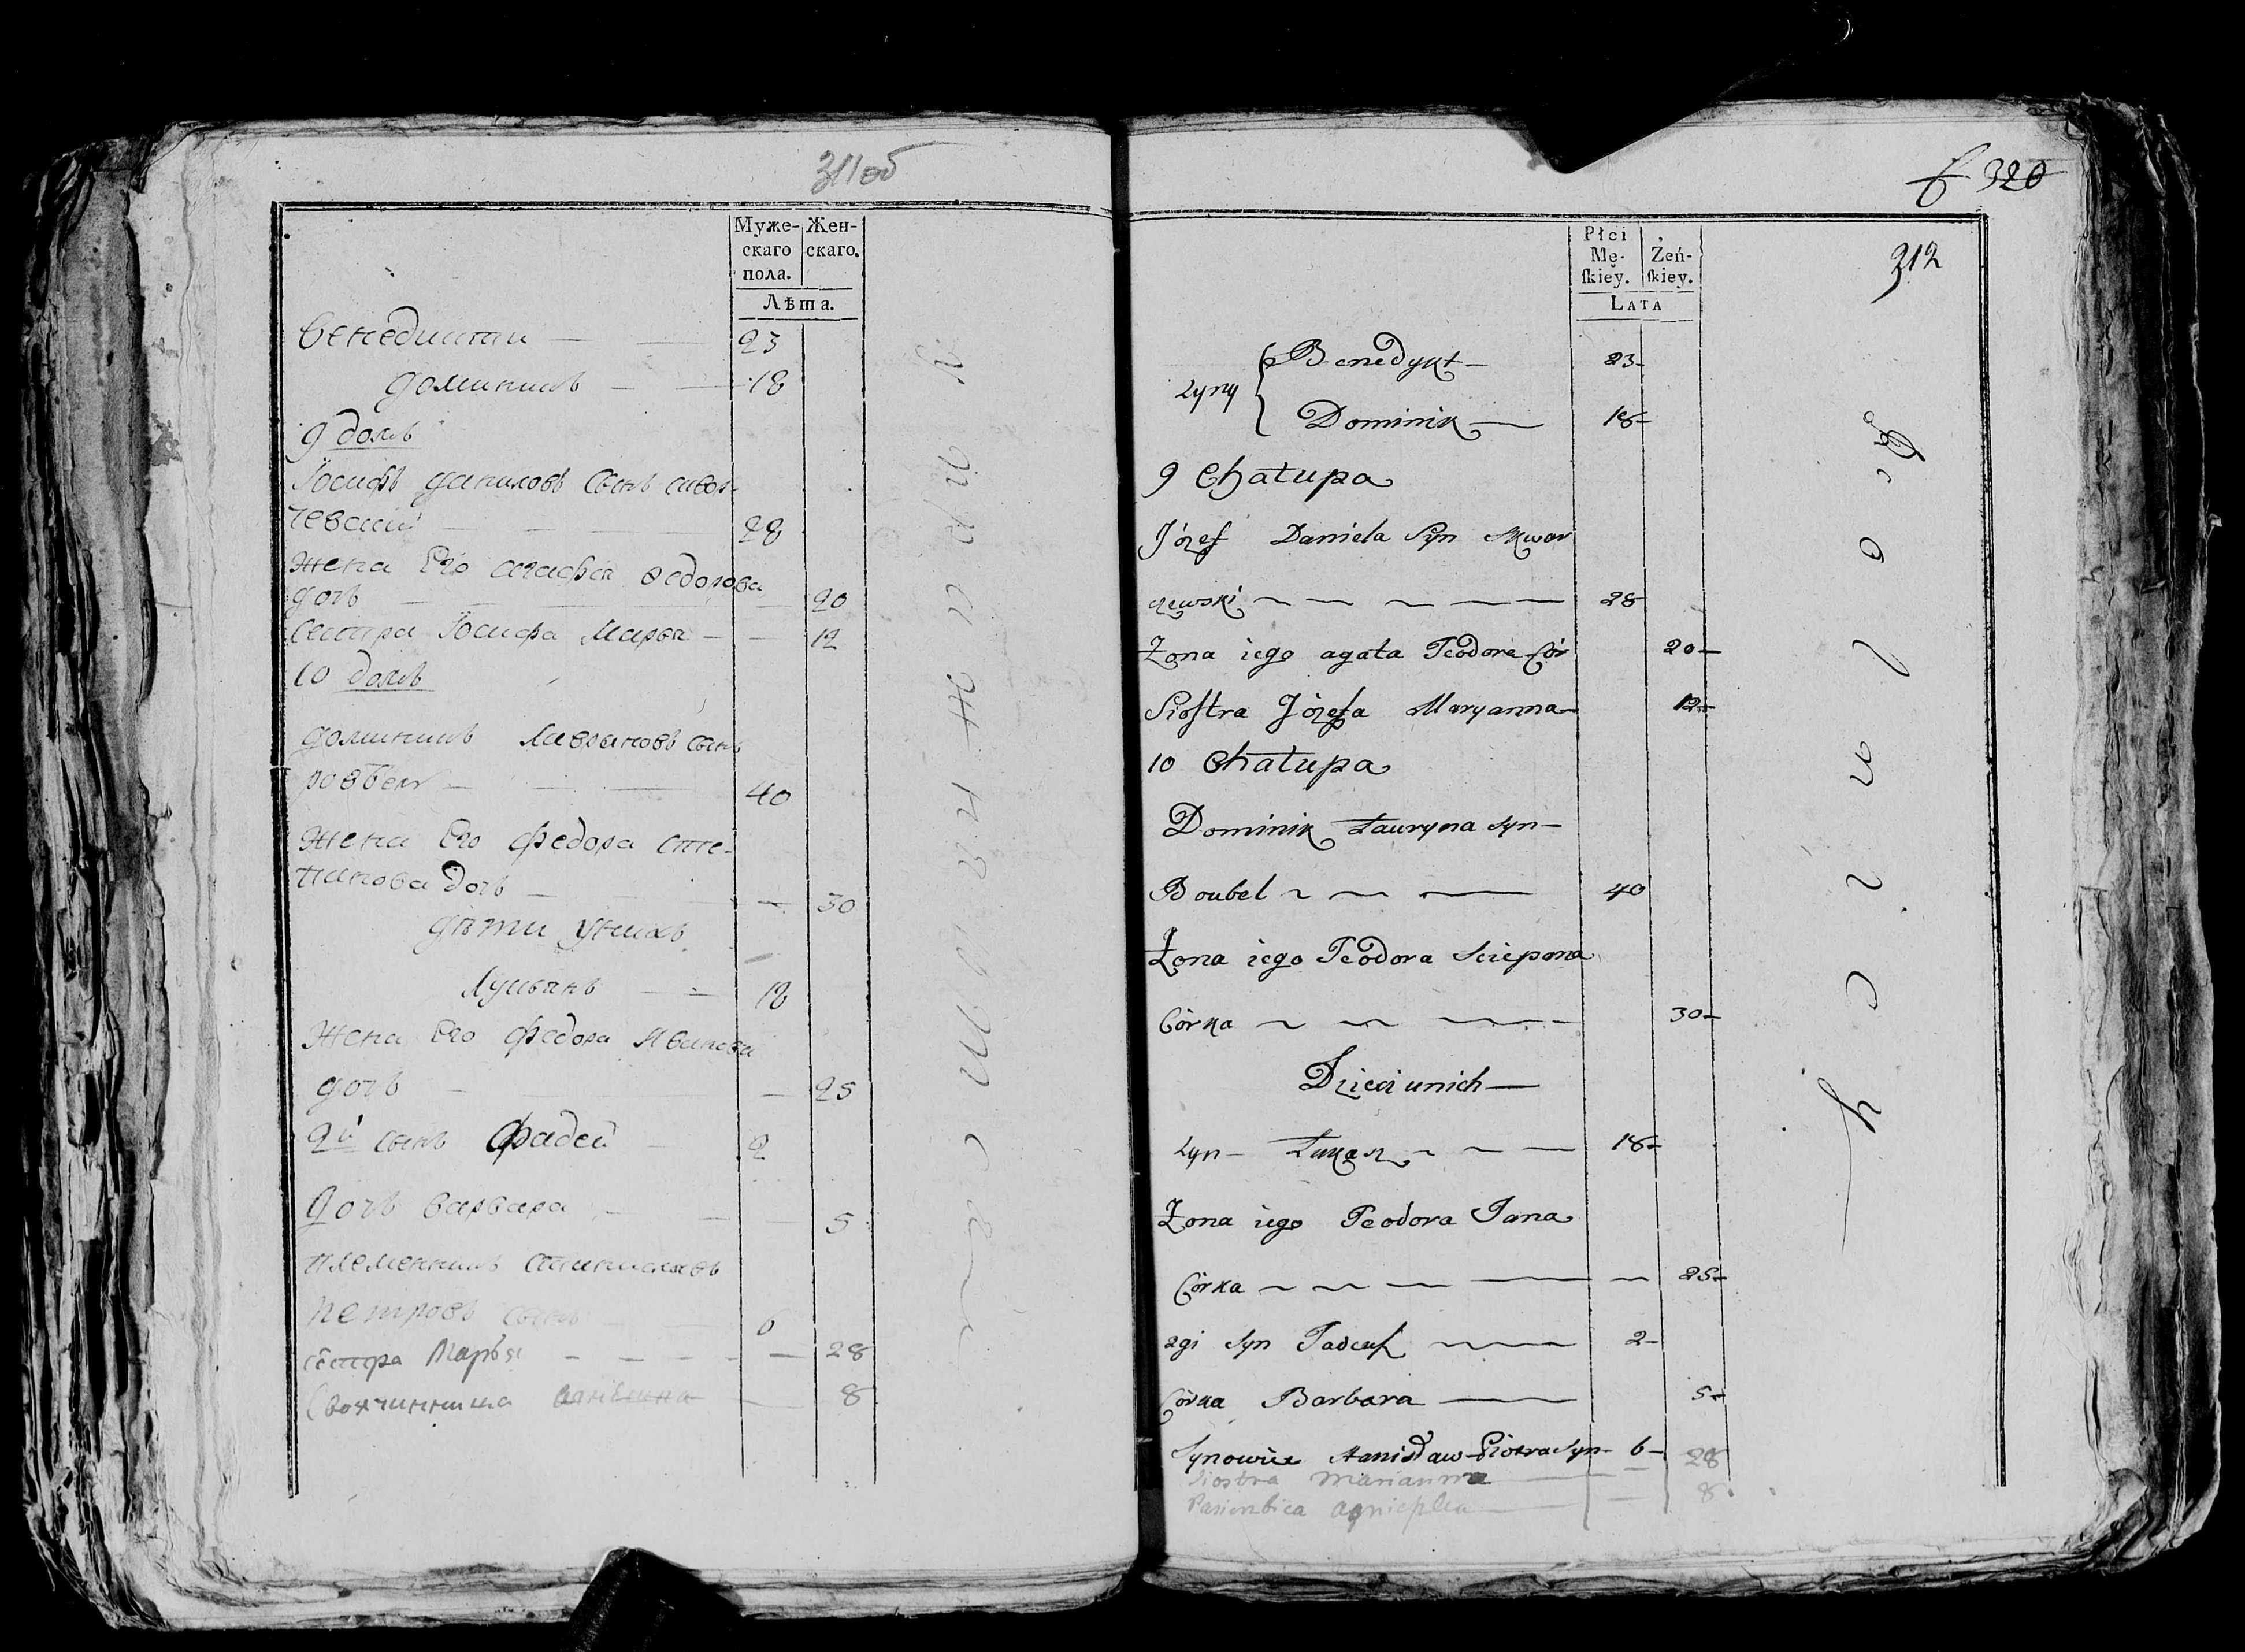 311об
Муже-
скаго
пола.
Жен-
скаго.
Лѣта.
Бенедиктъ — — 23
Доминикъ — — 18
9 домъ
Іосифъ Даниловъ сынъ сквор-
чевский — — — 28
жена Его агафья Федорова
дочь — — — 20
Сестра Іосифа Марья — — 12
10 домъ
Доминикъ Лавриновъ сынъ
— — — 40
Жена Его Федора Сте-
панова дочь — — 30
Дѣти унихъ
Лукьянъ — — 18
Жена Его Федора Иванова
дочь — — 25
2й сынъ Фадей — 2
Дочь варвара — — 5
племенникъ Станиславъ
петровъ сынъ — — 6
сестра Марья — — — — — 28
— 8
6 320
312
Płci
Mę-
ſkiey.
Żeń-
ſkiey.
LATA
Syny { Benedykt — 23 —
Dominik — 18 —
9 Chałupa
Józef Daniela Syn Skwar
czewski — — — — — 28
Żona iego agata Teodora Cór 20 —
Sioſtra Józefa Maryanna — 12 —
10 Chałupa
Dominik Łauryna syn —
Boubel — — — 40
Żona iego Teodora Sciepana
Córka — — — 30 —
Dzieci unich —
Syn — Łukasz — — — 18 —
Żona iego Teodora Jana
Córka — — — — — 25 —
2gi Syn Tadeuſz — — 2 —
Córka Barbara — 5 —
Synowiec Stanisław Piotra Syn — 6 —
Siostra Marianna — — 28
Pasierbica agnieszka — — 8